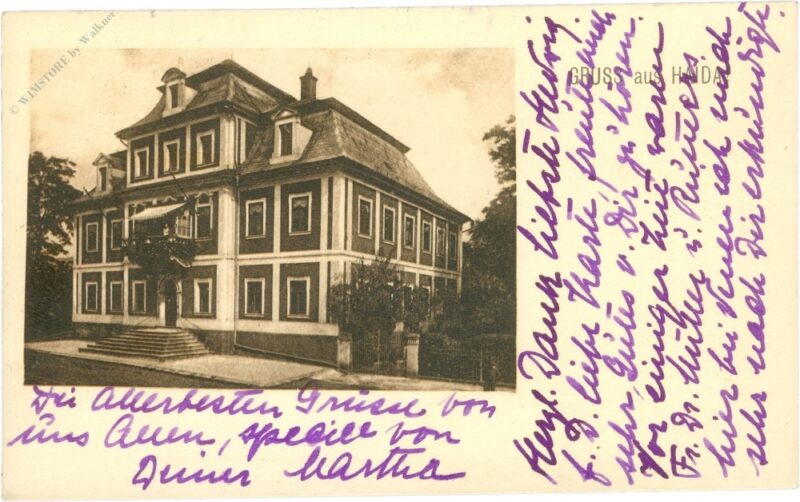 © WIMSTORE by Walkner
GRUSS aus HAIDA
Herzl. Dank liebste Hedwig
f. D. liebe Karte freute mich
sehr, Gutes v. Dir zu hören.
Vor einiger Zeit waren
Fr. Dr. Müller u.
hier bei denen ich mich
sehr nach Dir erkundigt.
Die Allerbesten Grüsse von
uns Allen, speciell von
Deiner Martha